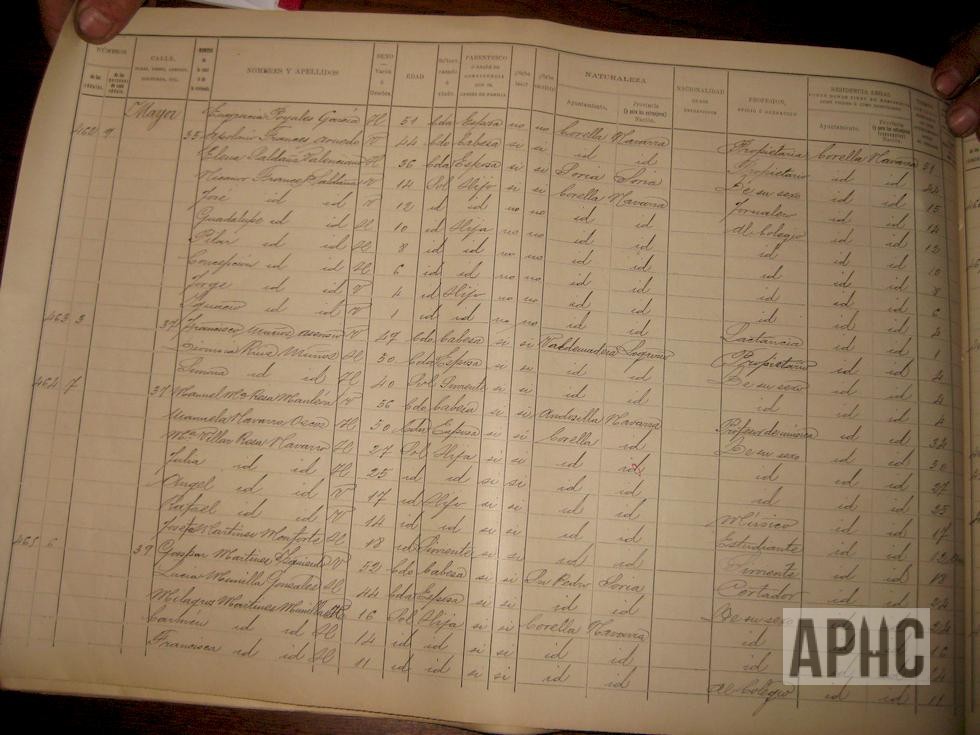 NÚMEROS CALLE, NOMBRES Y APELLIDOS SEXO EDAD PARENTESCO NATURALEZA NACIONALIDAD PROFESION, RESIDENCIA LEGAL
Ayuntamiento. Provincia Nación. Ayuntamiento. Provincia
Mayor Engracia Royales García H 51 Cda Esposa no no Corella Navarra Propietaria Corella Navarra 51
462 9 35 Apolonio Frances Arnedo V 44 Cdo Cabesa si si id id Propietario id id 44
Elena Saldaña Palenciano H 36 Cda Esposa si si Soria Soria De su sexo id id 15
Nicanor Frances Saldaña V 14 Sol Hijo si si Corella Navarra Jornalero id id 14
José id id V 12 id id no no id id Al Colegio id id 12
Guadalupe id id H 10 id Hija no no id id id id id 10
Pilar id id H 8 id id no no id id id id id 8
Concepción id id H 6 id id no no id id id id id 6
Jorge id id V 4 id Hijo no no id id id id id 4
Ignacio id id V 1 id id no no id id Lactancia id id 1
463 3 37 Francisco Muños Asensio V 47 Cdo Cabesa si si Valdemadera Logroño Propietario id id 4
Dionisia Rius Muños H 50 Cda Esposa si si id id De su sexo id id 4
Simona id id H 40 Sol Sirvienta si si id id id id id 4
464 7 37 Manuel Mª Rosa Mantéro V 56 Cdo Cabesa si si Andosilla Navarra Profesor de música id id 32
Manuela Navarro Oscoz H 50 Cda Esposa si si Corella id De su sexo id id 30
Mª Villar Rosa Navarro H 27 Sol Hija si si id id id id id 27
Julia id id H 25 id id si si id id id id id 25
Angel id id V 17 id Hijo si si id id Músico id id 17
Rafael id id V 14 id id si si id id Estudiante id id
Josefa Martines Monforte H 18 id Sirvienta si si id id Sirvienta id id 18
465 6 39 Gaspar Martines Izquierdo V 52 Cdo Cabesa si si San Pedro Soria Cortador id id 24
Lucia Munilla Gonsales H 44 Cda Esposa si si id id De su sexo id id 24
Milagros Martines Munilla H 16 Sol Hija si si Corella Navarra id id id 16
Carmen id id H 14 id id si si id id id id id 14
Francisca id id H 11 id id si si id id Al Colegio id id 11
APHC